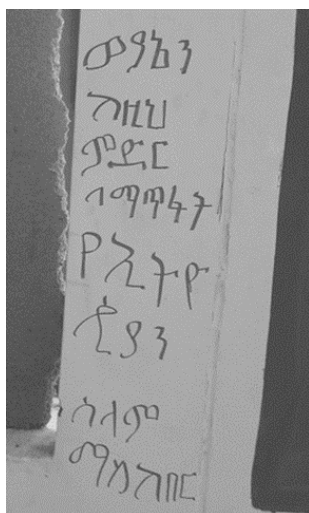 ወያኔን
ከዚህ
ምድር
ለማጥፋት
የኢትዮ
ጲያን
ሰላም
ማስከበር